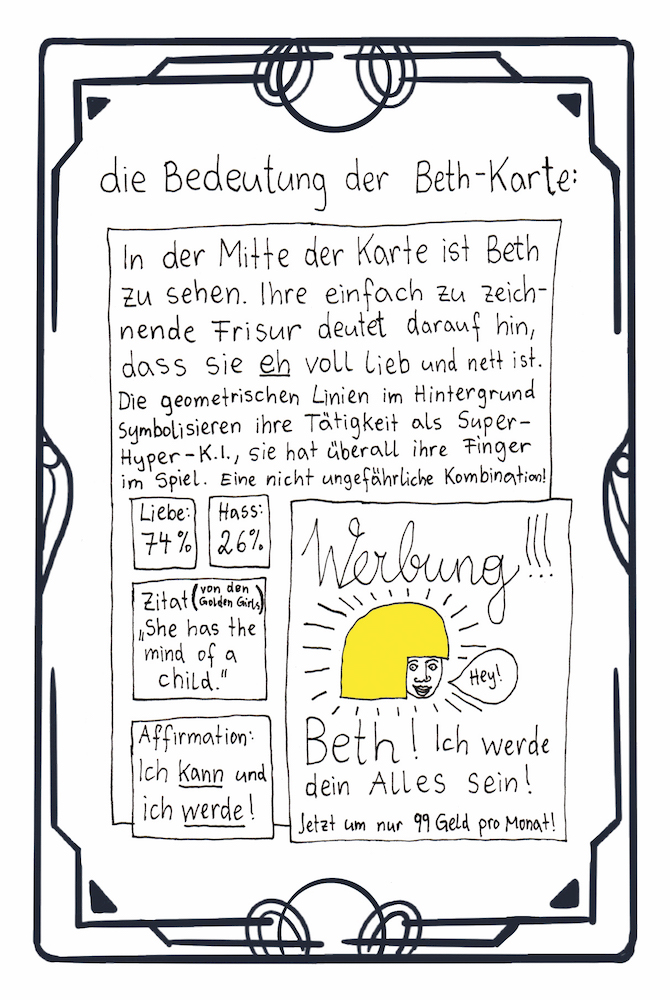 die Bedeutung der Beth-Karte:
In der Mitte der Karte ist Beth
zu sehen. Ihre einfach zu zeich-
nende Frisur deutet darauf hin,
dass sie eh voll lieb und nett ist.
Die geometrischen Linien im Hintergrund
Symbolisieren ihre Tätigkeit als Super-
Hyper-K.I., sie hat überall ihre Finger
im Spiel. Eine nicht ungefährliche Kombination!
Liebe:
74%
Hass:
26%
Zitat (von den
Golden Girls)
„She has the
mind of a
child."
Affirmation:
Ich kann und
ich werde!
Werbung!!!
Hey!
Beth! Ich werde
dein Alles sein!
Jetzt um nur 99 Geld pro Monat!